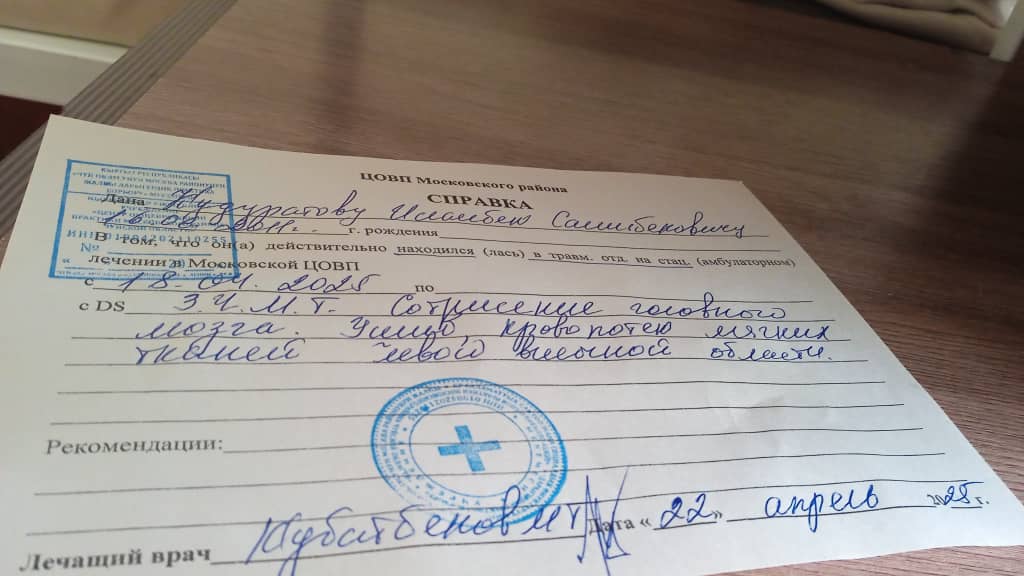 ЦОВП Московского района
СПРАВКА
КЫРГЫЗ РЕСПУБЛИКАСЫ
Дана Кудуратову Илимбек Салибековичу
г. рождения
В том, что он(а) действительно находился (лась) в травм. отд. на стац. (амбулаторном)
лечении в Московской ЦОВП
№
с 18-04. 2025 по
с DS З.Ч.М.Т. Сотрисение головного
мозга. Ушиб, кровопотею мягких
тканей левого височной области.
Рекомендации:
Лечащий врач Кубатбеков Дата «22» апрель 2025 г.